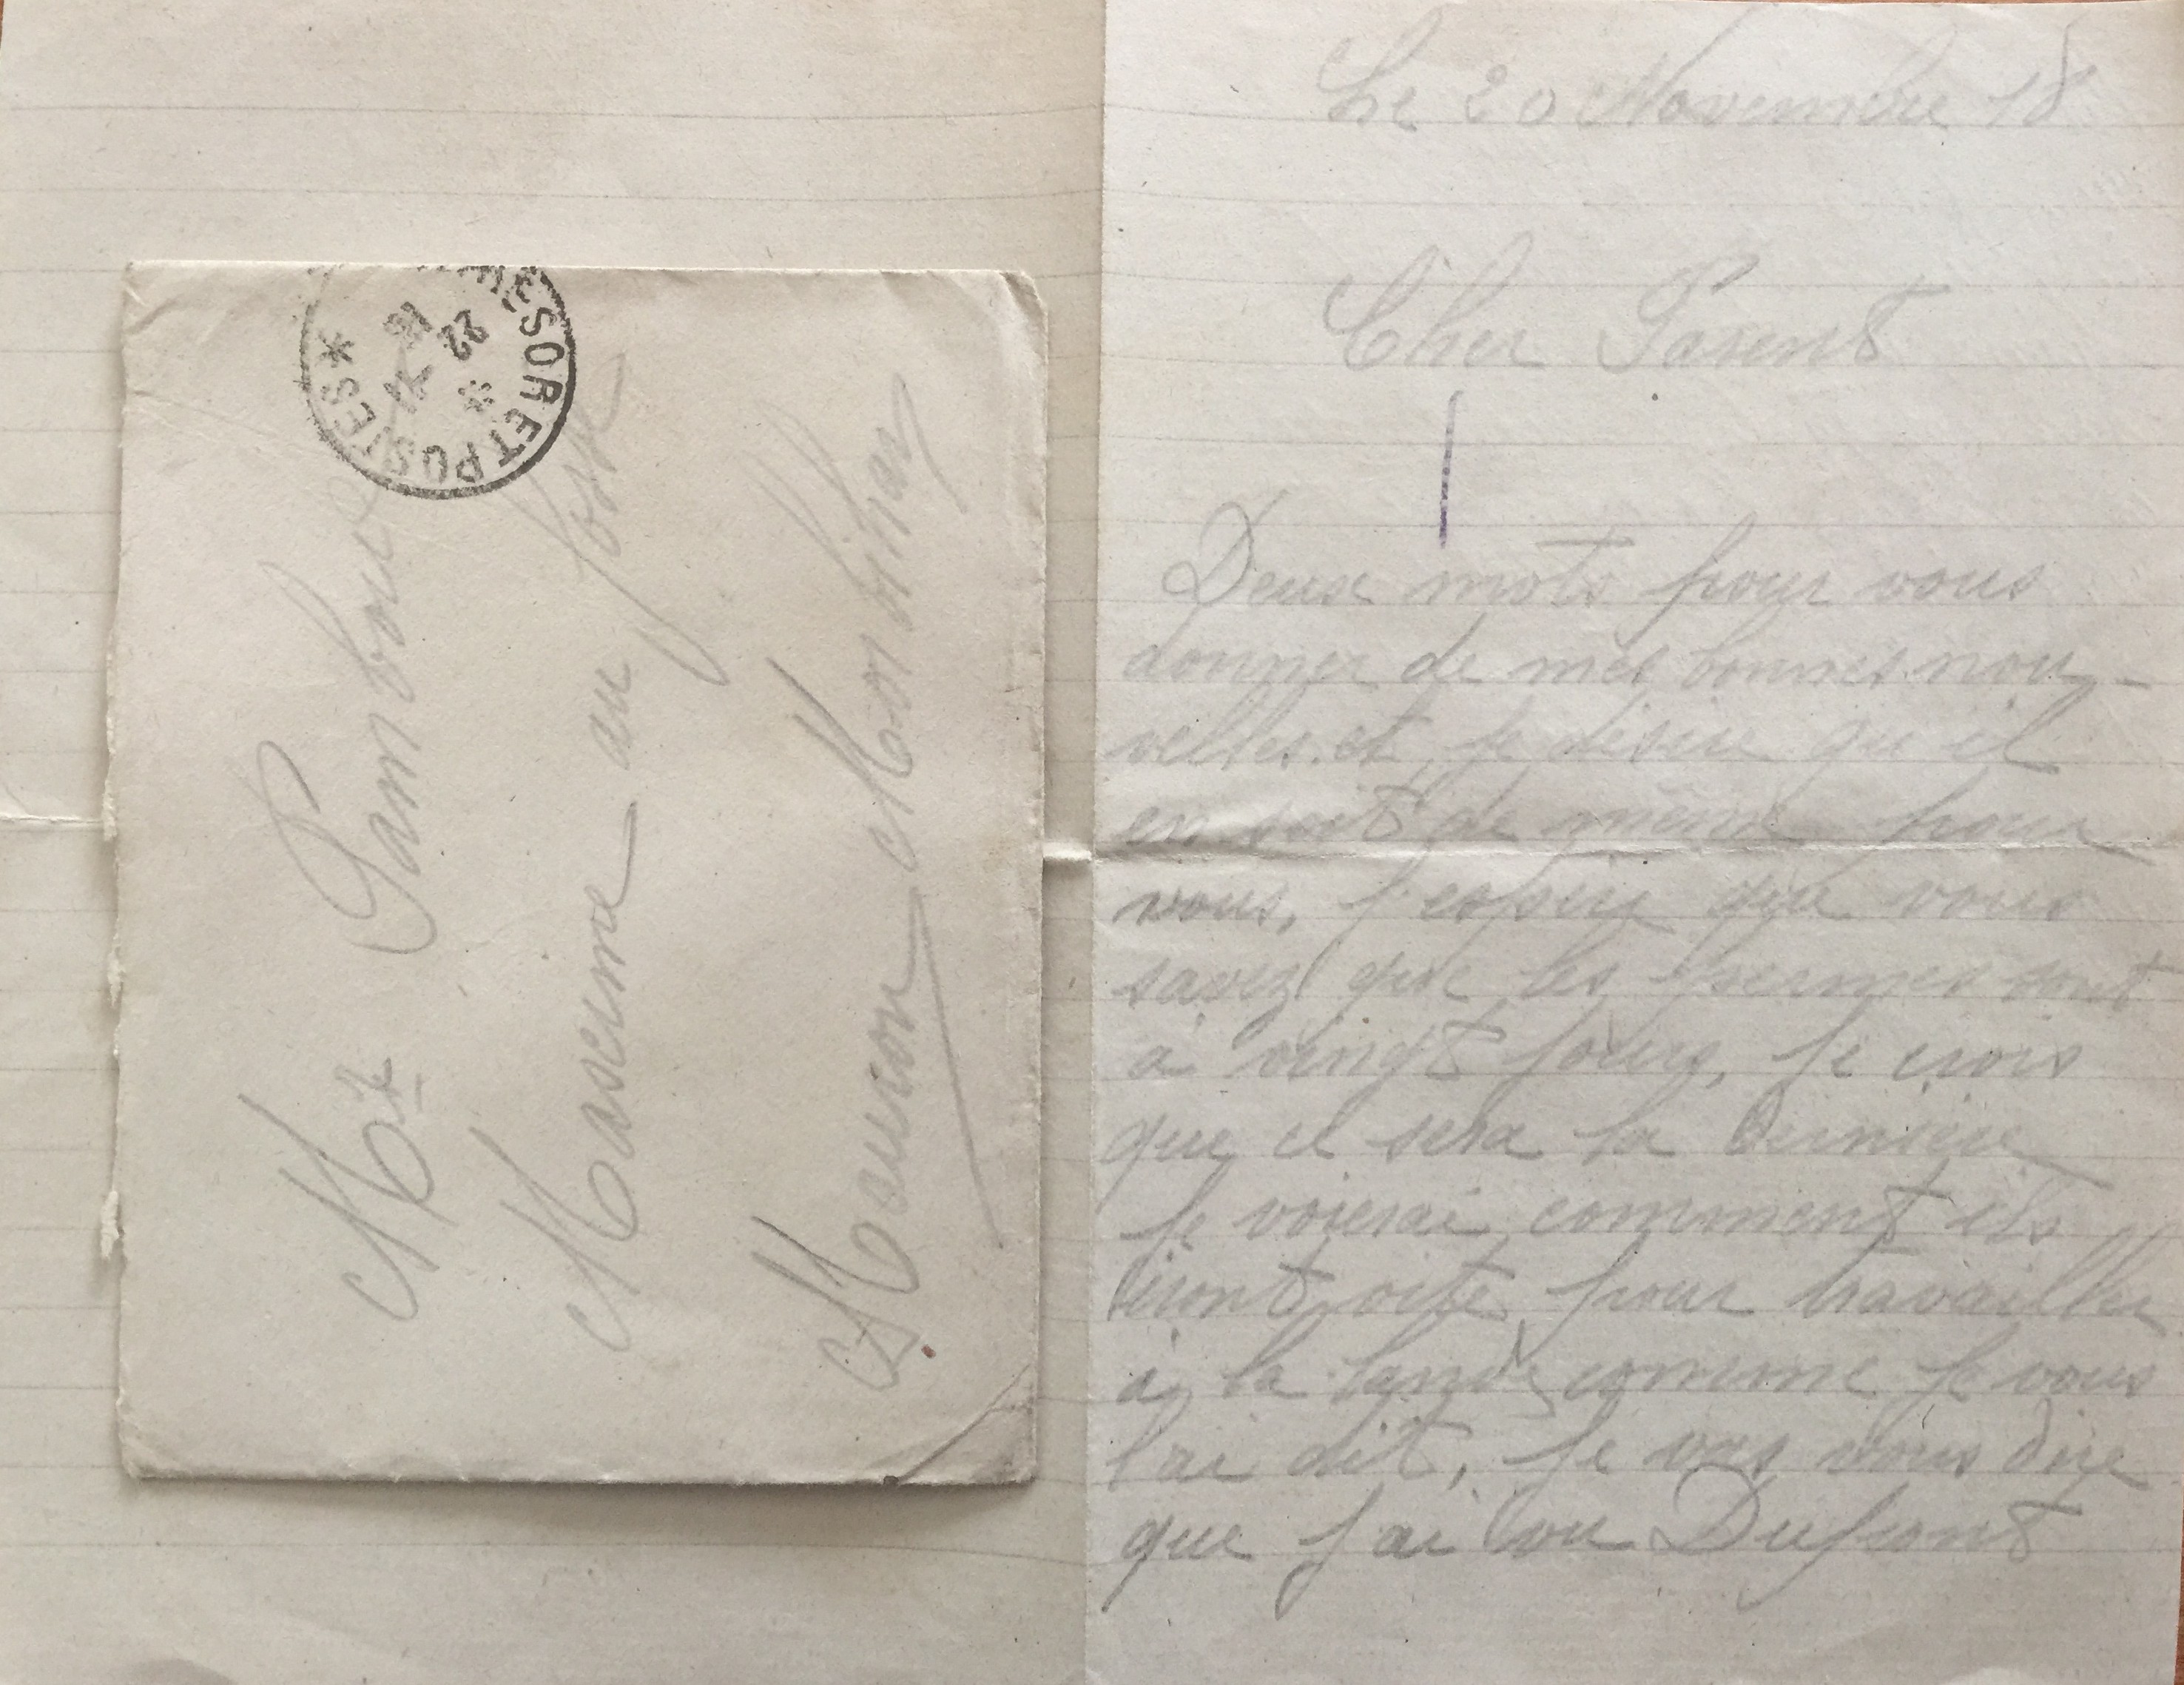 TRESOR ET POSTES *
22
11
18
Mr Pambour
Maseine au fossé
Mauron Morbihan
Le 20 Novembre 18
Cher Parent
Deux mots pour vous
donner de mes bonnes nou-
velles et je désire qu'il
en soit de même pour
vous, j'espère que vous
savez que les permes sont
à vingt jours, je crois
que cé sera la dernière
je voierai comment ils
iront vite pour travailler
à la lande comme je vous
l'ai dit, je vas vous dire
que j'ai vu Dupont